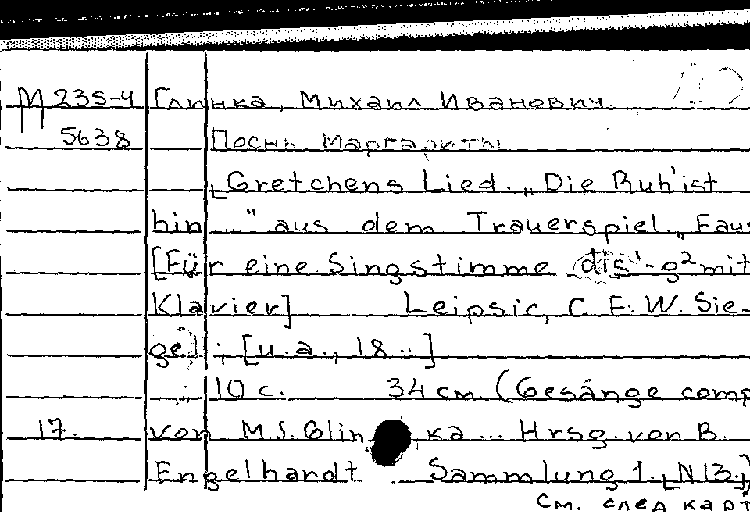 М 235-4 Глинка, Михаил Иванович
5638 Песнь Маргариты
„Gretchens Lied. „Die Ruh' ist
hin ..." aus dem Trauerspiel „Faus
[Für eine Singstimme dis¹-g² mit
Klavier] Leipsic, C. F. W. Sie-
gel; [u. a., 18..]
10 с. 34 см (Gesänge comp
17. von M. S. Glinka ... Hrsg. von B.
Engelhardt .. Sammlung 1, N 13,
См. след карт